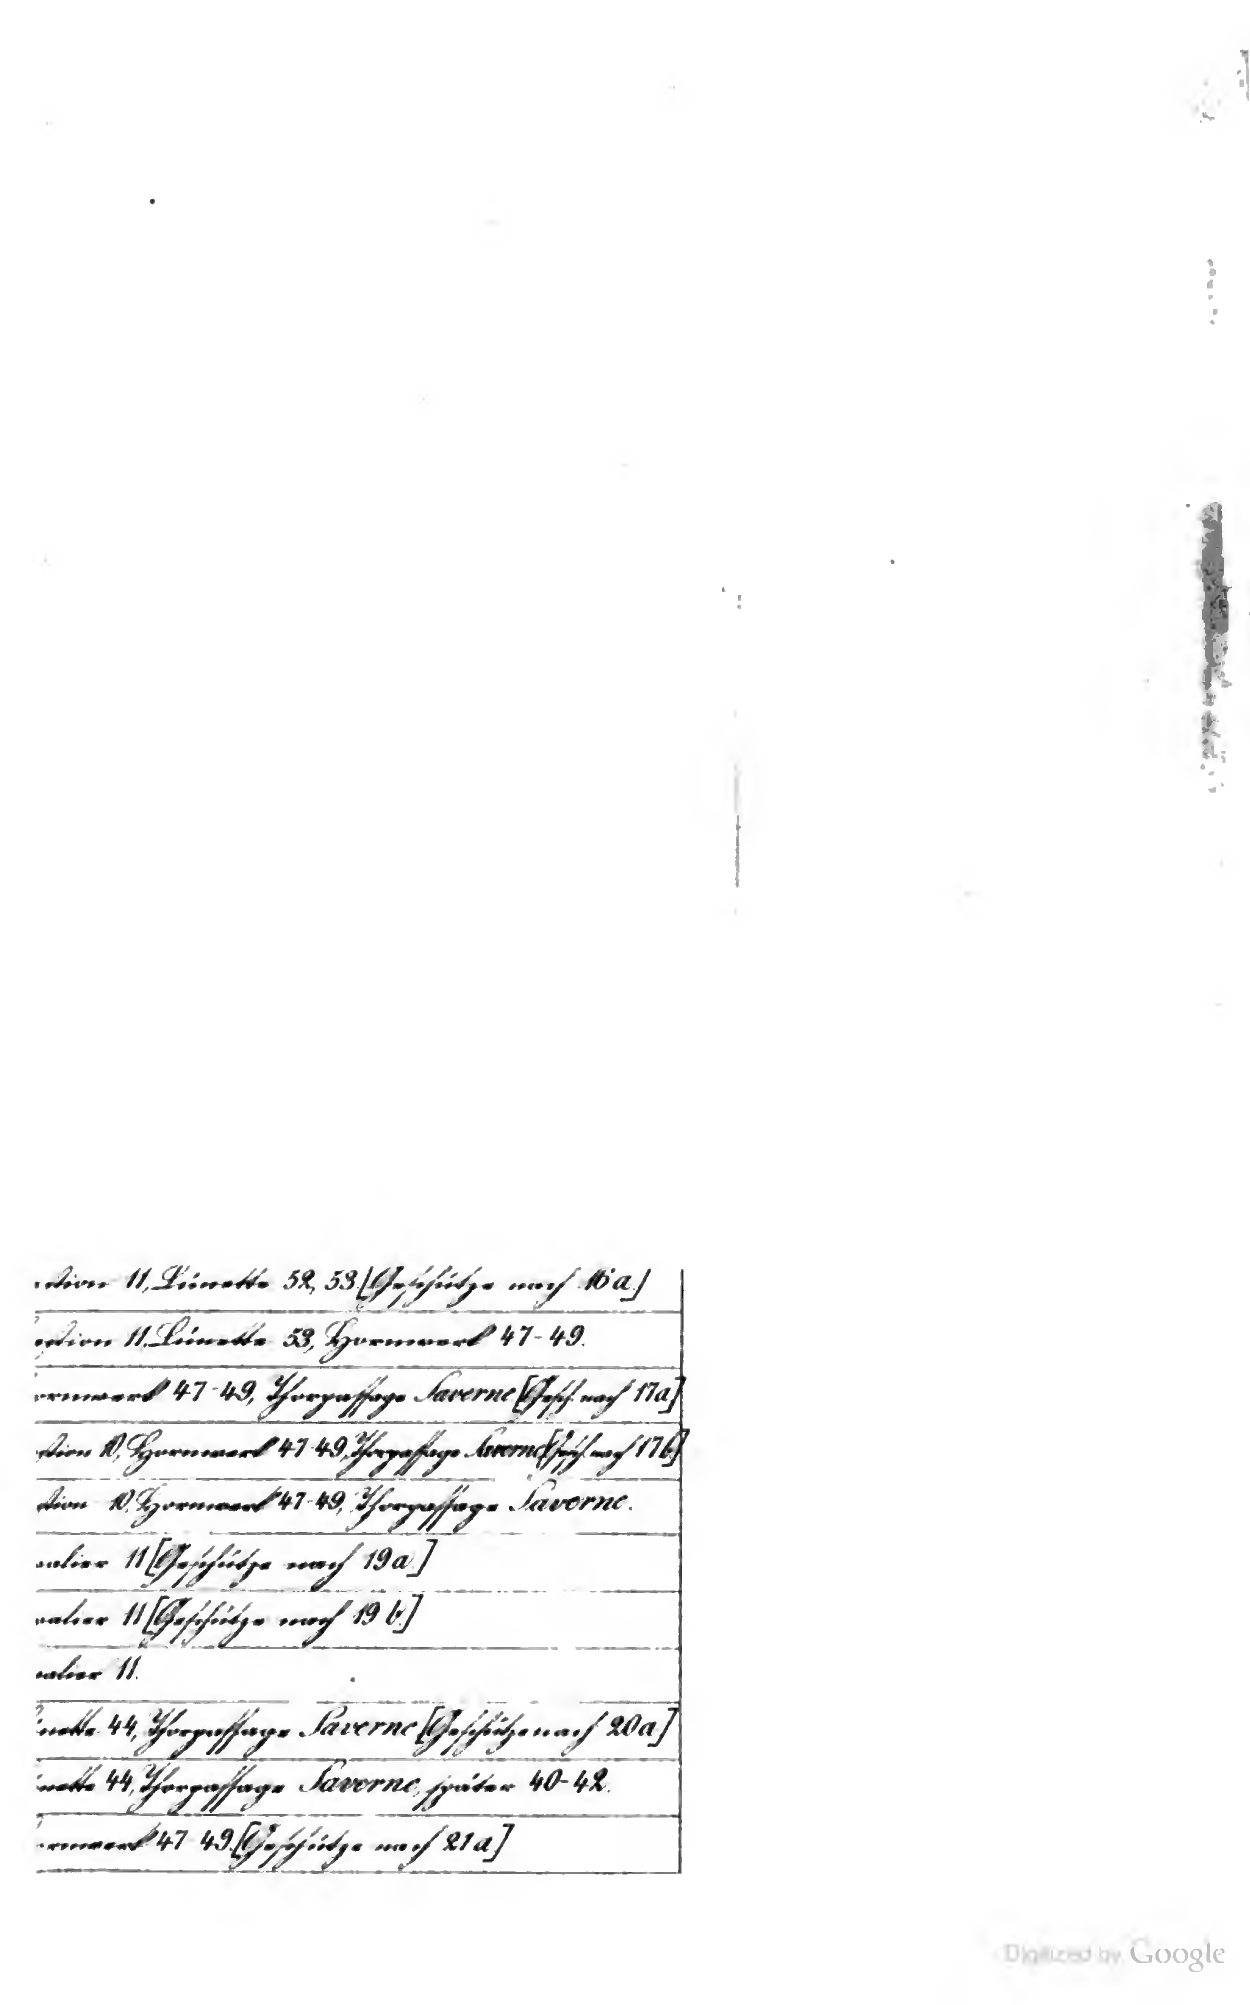 stion 11, Lünette 52, 53 [Geschütze nach 16a]
astion 11, Lünette 53, Hornwerk 47-49.
ornwerk 47-49, Thorpassage Saverne [Gesch. nach 17a]
stion 10, Hornwerk 47-49, Thorpassage Saverne [Gesch. nach 17b]
stion 10, Hornwerk 47-49, Thorpassage Saverne.
valier 11 [Geschütze nach 19a.]
valier 11 [Geschütze nach 19b.]
valier 11.
ünette 44, Thorpassage Saverne [Geschütze nach 20a]
ünette 44, Thorpassage Saverne, später 40-42.
ornwerk 47-49 [Geschütze nach 21a]
Digitized by Google